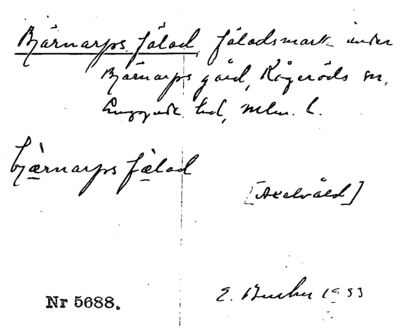 Bjärnarps fälad fäladsmark under
Bjärnarps gård, Kågeröds sn,
Luggude hd, Mlm. l.
bjärnarps fälad
[Axelvåld]
E. 1933
Nr 5688.